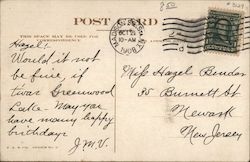 POST CARD
THIS SPACE MAY BE USED FOR
CORRESPONDENCE
OCT 21
10-AM
1908
Hazel!
Would it not
be fine, if
twas Greenwood
Lake - May you
have many happy
birthdays
J.M.V.
Miss Hazel Bender
35 Burnett St
Newark
New Jersey